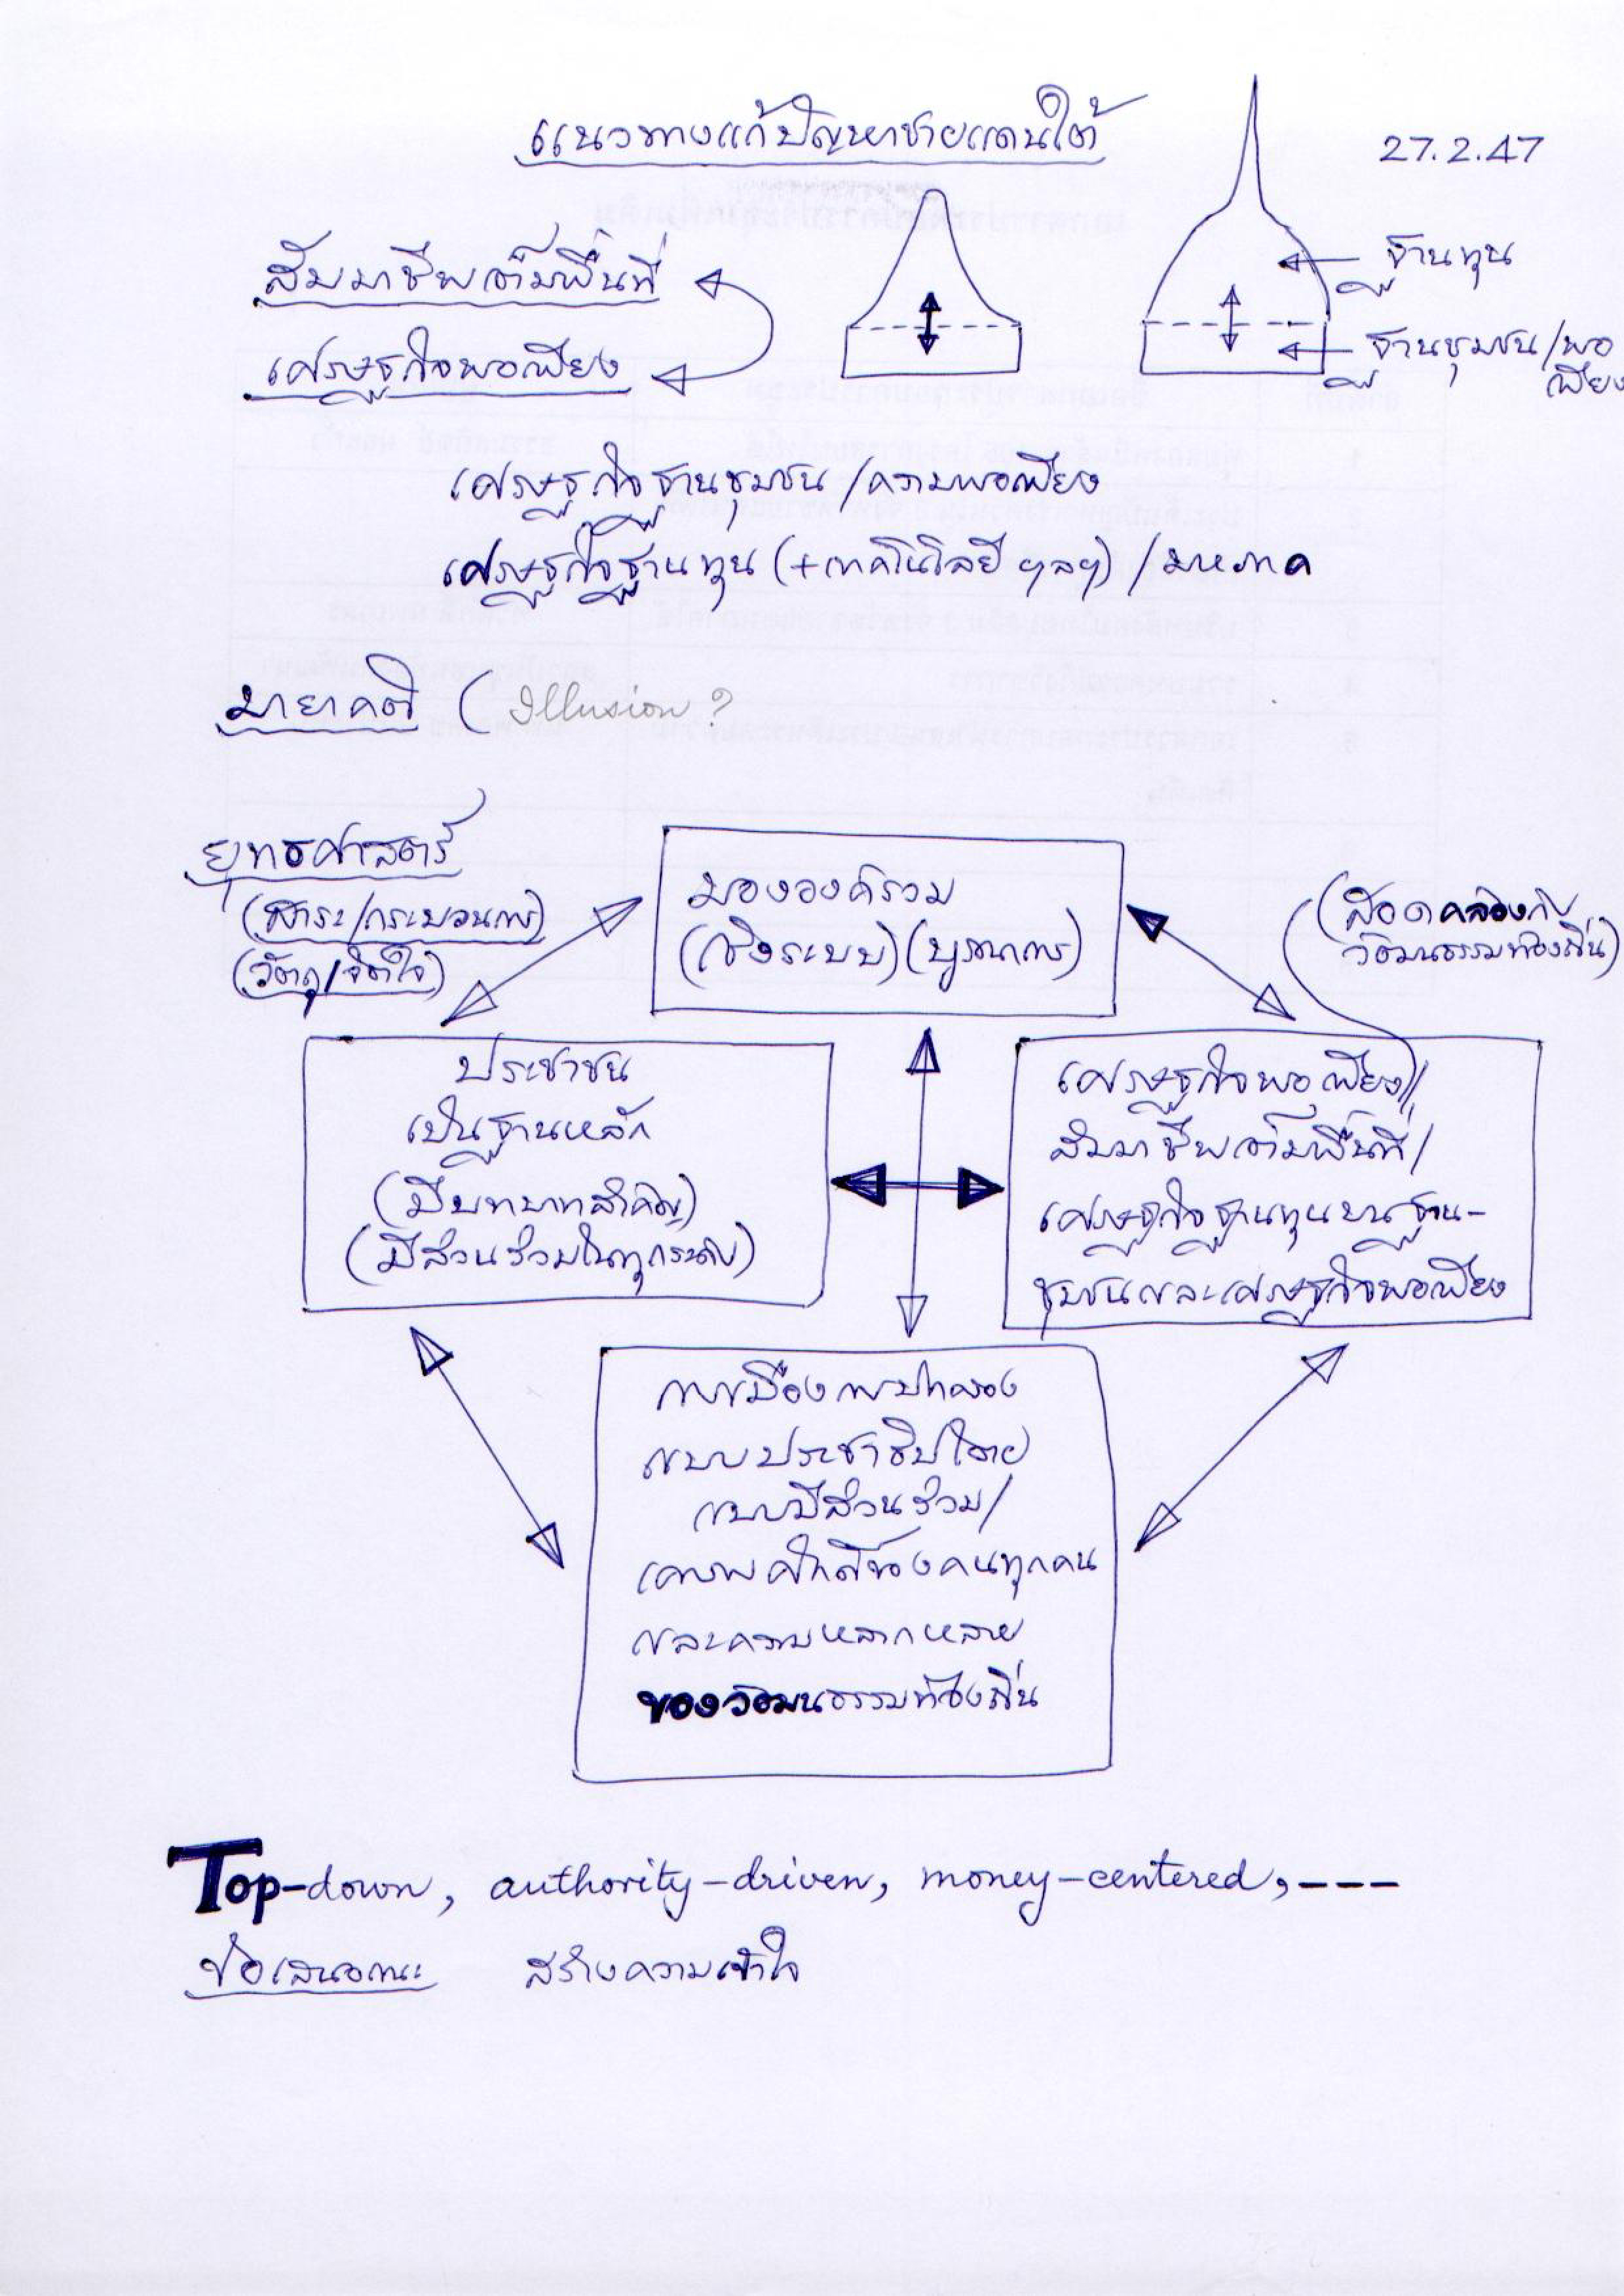 แนวทางแก้ปัญหาชายแดนใต้
27.2.47
สัมมาชีพเต็มพื้นที่
เศรษฐกิจพอเพียง
ฐานทุน
ฐานชุมชน/พอ
เพียง
เศรษฐกิจฐานชุมชน/ความพอเพียง
เศรษฐกิจฐานทุน (+เทคโนโลยี ฯลฯ) / มหภาค
มายาคติ ( Illusion ?
ยุทธศาสตร์
(สาระ/กระบวนการ)
(วัตถุ/จิตใจ)
มององค์รวม
(เชิงระบบ) (บูรณาการ)
(สอดคล้องกับ
วัฒนธรรมท้องถิ่น)
ประชาชน
เป็นฐานหลัก
(มีบทบาทสำคัญ)
(มีส่วนร่วมในทุกระดับ)
เศรษฐกิจพอเพียง/
สัมมาชีพเต็มพื้นที่/
เศรษฐกิจฐานทุนบนฐาน-
ชุมชนและเศรษฐกิจพอเพียง
การเมืองการปกครอง
แบบประชาธิปไตย
แบบมีส่วนร่วม/
เคารพศักดิ์ของคนทุกคน
และความหลากหลาย
ของวัฒนธรรมท้องถิ่น
Top-down, authority-driven, money-centered, ---
ข้อเสนอแนะ สร้างความเข้าใจ